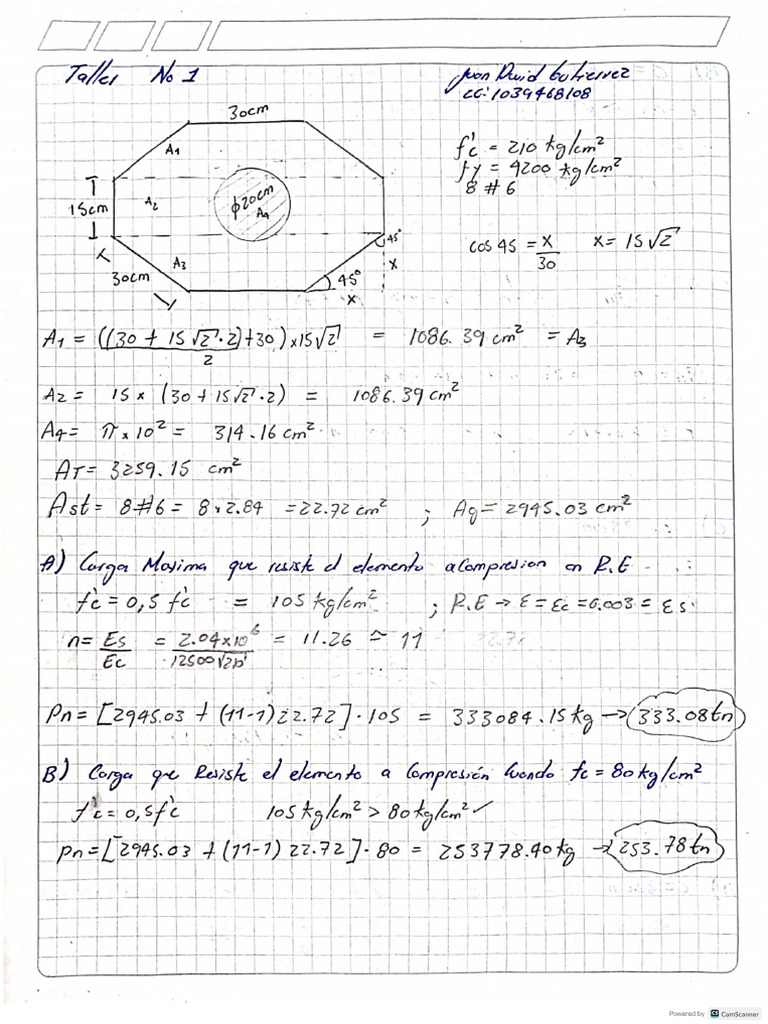 Taller No 1
Juan David Gutierrez
CC: 1039468108
30cm
A1
f'c = 210 kg/cm²
fy = 4200 kg/cm²
8 # 6
15cm
A2
ϕ20cm
A4
45°
cos 45 = x/30 x = 15√2
x
30cm
A3
45°
x
A1 = ((30 + 15√2·2)+30)/2 × 15√2 = 1086.39 cm² = A3
A2 = 15 × (30 + 15√2·2) = 1086.39 cm²
A4 = π × 10² = 314.16 cm²
AT = 3259.15 cm²
Ast = 8#6 = 8 × 2.84 = 22.72 cm² ; Ag = 2945.03 cm²
A) Carga Maxima que resiste el elemento a compresion en R.E
f'c = 0,5 f'c = 105 kg/cm² ; R.E → ε = εc = 0.003 = εs
n = Es/Ec = 2.04×10⁶/12500√210 = 11.26 ≃ 11
Pn = [2945.03 + (11-1) 22.72] · 105 = 333084.15 kg → 333.08 tn
B) Carga que Resiste el elemento a Compresión Cuando fc = 80 kg/cm²
f'c = 0,5 f'c 105 kg/cm² > 80 kg/cm² ✓
Pn = [2945.03 + (11-1) 22.72] · 80 = 253778.40 kg → 253.78 tn
Powered by CS CamScanner